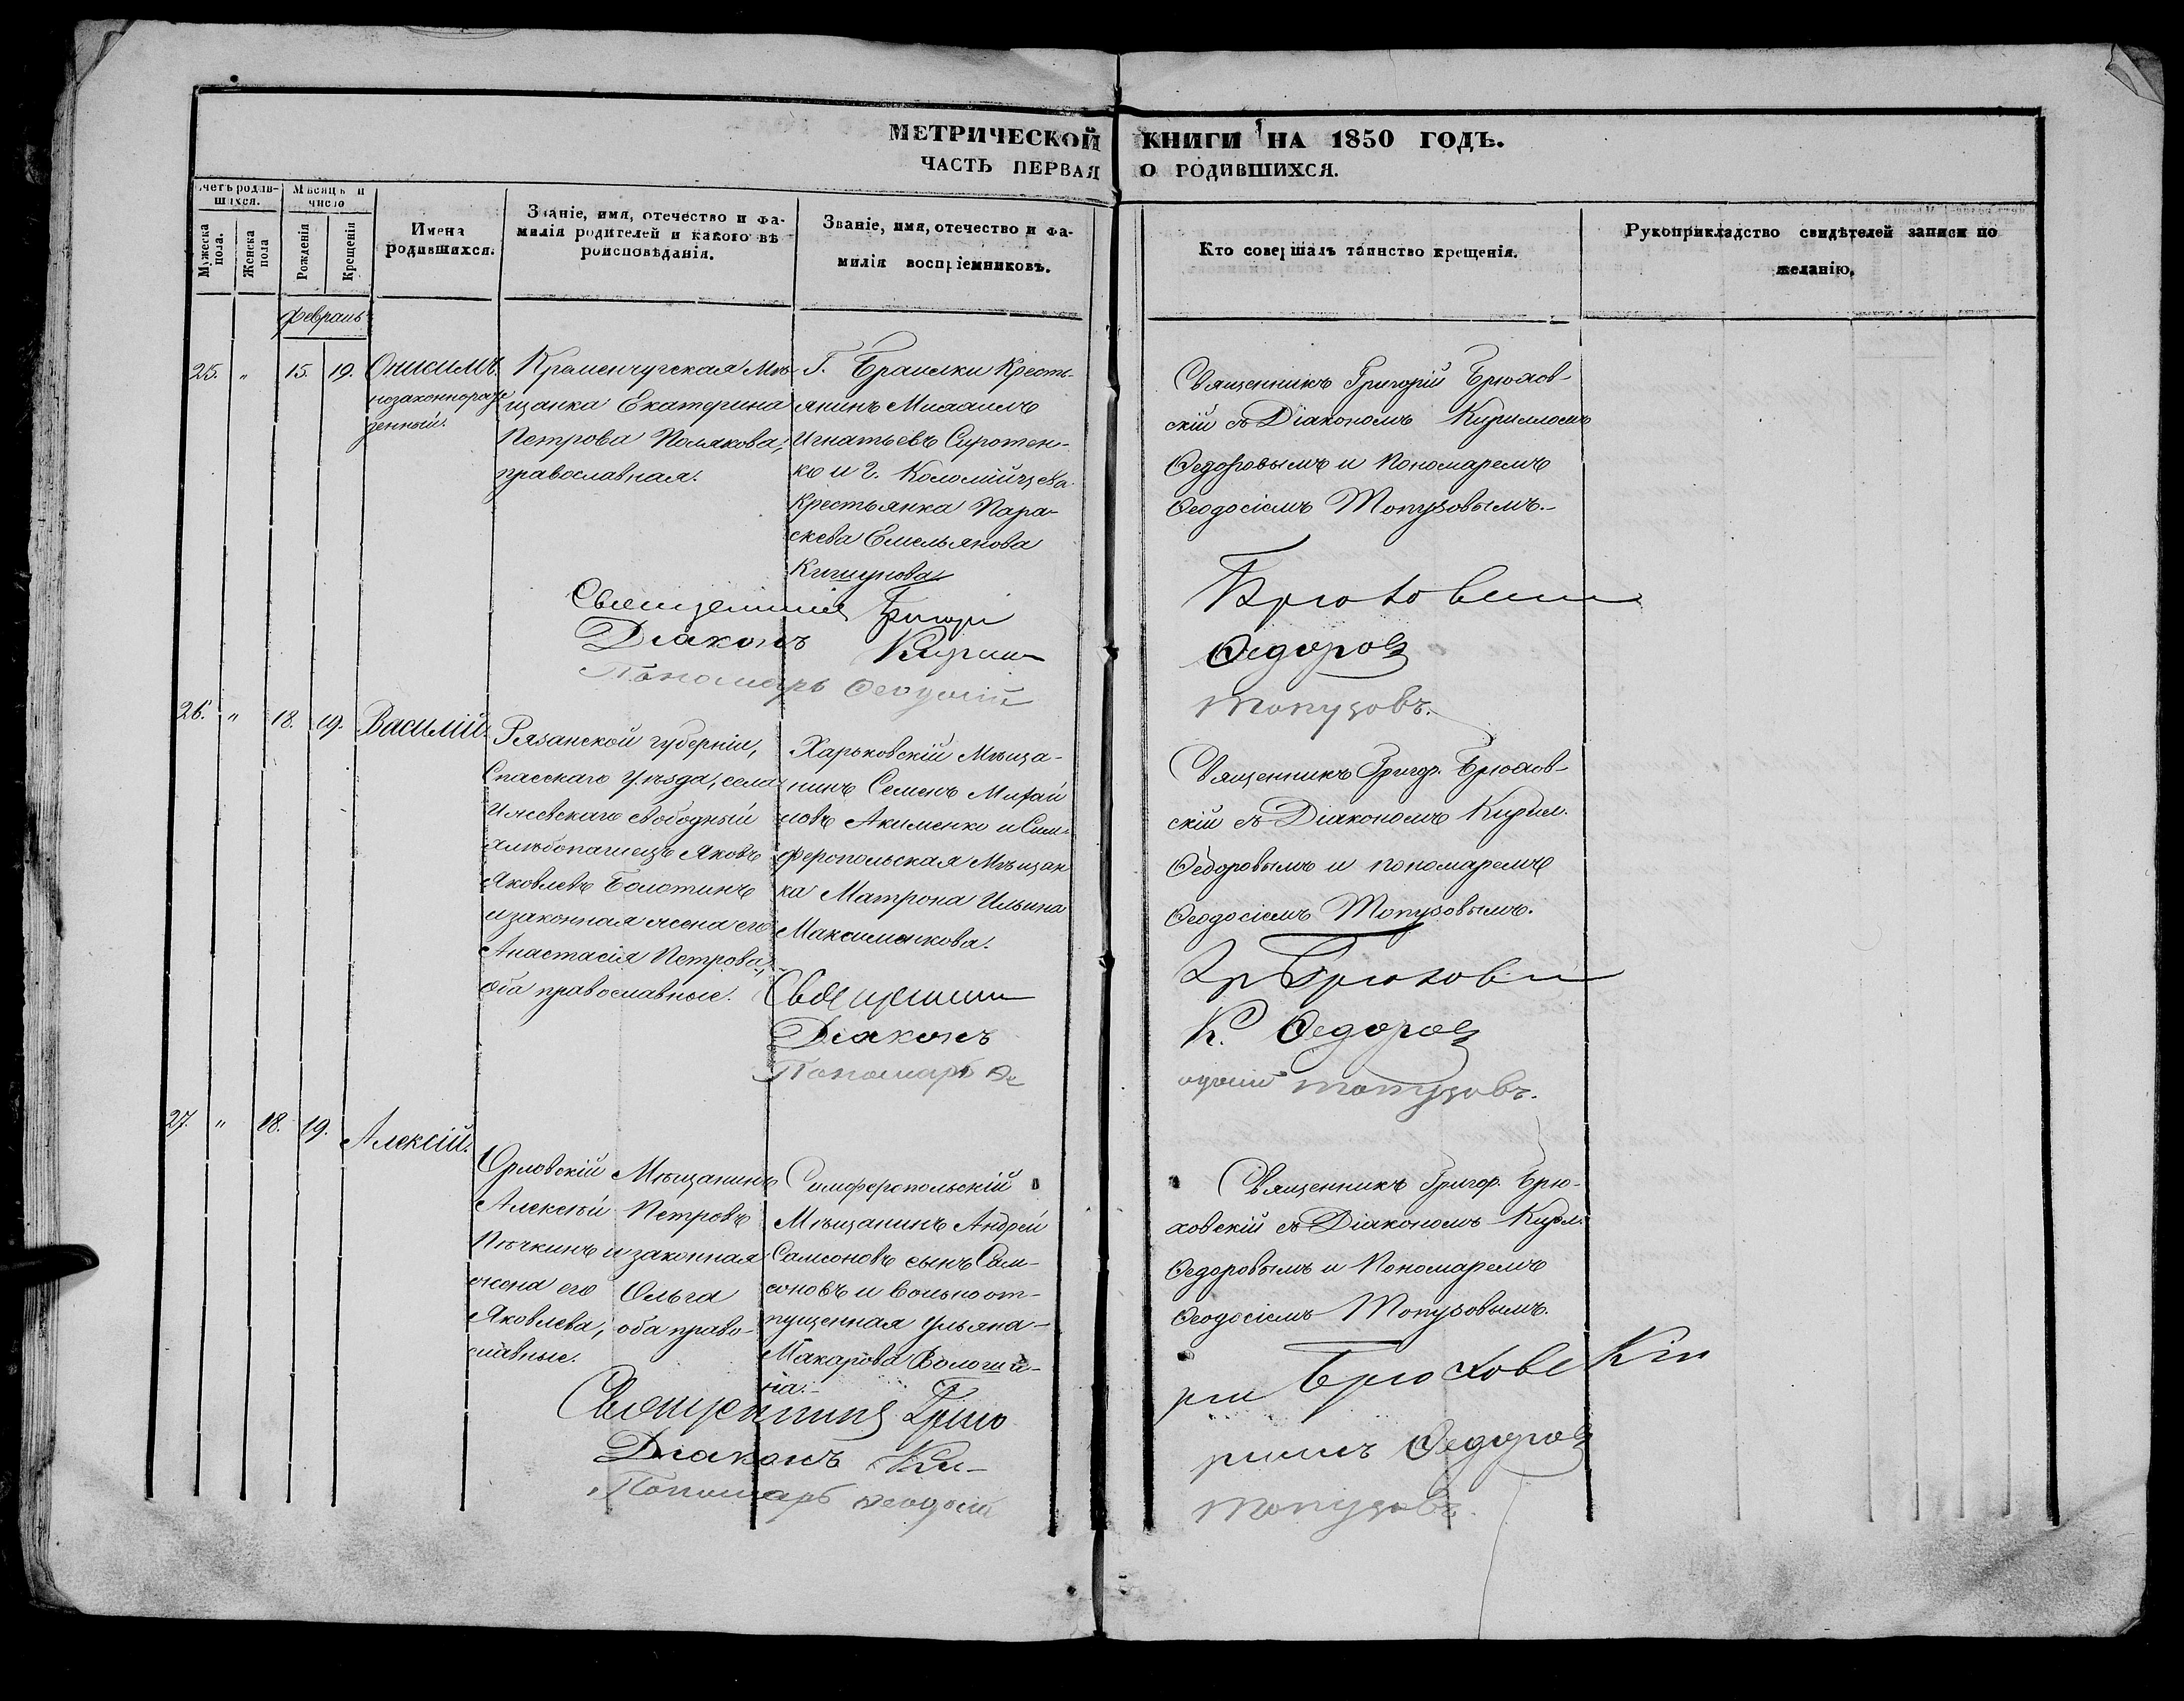 МЕТРИЧЕСКОЙ КНИГИ НА 1850 ГОДЪ.
ЧАСТЬ ПЕРВАЯ О РОДИВШИХСЯ.
счетъ родив-
шихся.
Мужеска пола.
Женска пола
Мѣсяцъ и
число
Рожденія
Крещенія
Имена
родившихся.
Званіе, имя, отечество и фа-
милія родителей и какого вѣ
роисповѣданія.
Званіе, имя, отечество и фа-
милія воспріемниковъ.
Кто совершалъ таинство крещенія.
Рукоприкладство свидѣтелей записи по
желанію.
Февраль
25. " 15. 19.
Онисимъ
незаконнорож
денный.
Кременчугская Мѣ-
щанка Екатерина
Петрова Полякова,
православная.
Г. Браилки Кресть-
янинъ Михаилъ
Игнатьевъ Сиротен-
ко и г. Коломійцева
Крестьянка Пара-
скева Емельянова
Священникъ Григорій Брюхов-
скій съ Діакономъ Кирилломъ
Федоровымъ и Пономаремъ
Феодосіемъ Топузовымъ.
Священникъ Григорі Брюховецкі
Діаконъ Кирилъ Федоровъ
Пономарь Феодосій Топузовъ.
26. " 18. 19.
Василій.
Рязанской губерніи,
Спасскаго уѣзда, села
Ижевскаго свободный
хлѣбопашецъ Яковъ
Яковлевъ Болотинъ
и законная жена его
Анастасія Петрова,
оба православные.
Харьковскій Мѣща-
нинъ Семенъ Михай
ловъ Акименко и Сим-
феропольская Мѣщан
ка Матрона Ильина
Максименкова.
Священникъ Григор. Брюхов-
скій съ Діакономъ Кирил.
Федоровымъ и пономаремъ
Феодосіемъ Топузовымъ.
Священникъ Гр Брюховецкі
Діаконъ К. Федоровъ
Пономарь Фе одосій Топузовъ.
27. " 18. 19.
Алексій.
Орловскій Мѣщанинъ
Алексѣй Петровъ
Пѣчкинъ и законная
жена его Ольга
Яковлева, оба право-
славные.
Симферопольскій
Мѣщанинъ Андрей
Самсоновъ сынъ Сам-
соновъ и вольноот-
пущенная Ульяна
Макарова Волоши-
на.
Священникъ Григор. Брю-
ховскій съ Діакономъ Кирил.
Федоровымъ и Пономаремъ
Феодосіемъ Топузовымъ.
Священникъ Григо рій Брюховецкій
Діаконъ Ки- рилъ Федоровъ
Пономарь Феодосій Топузовъ.